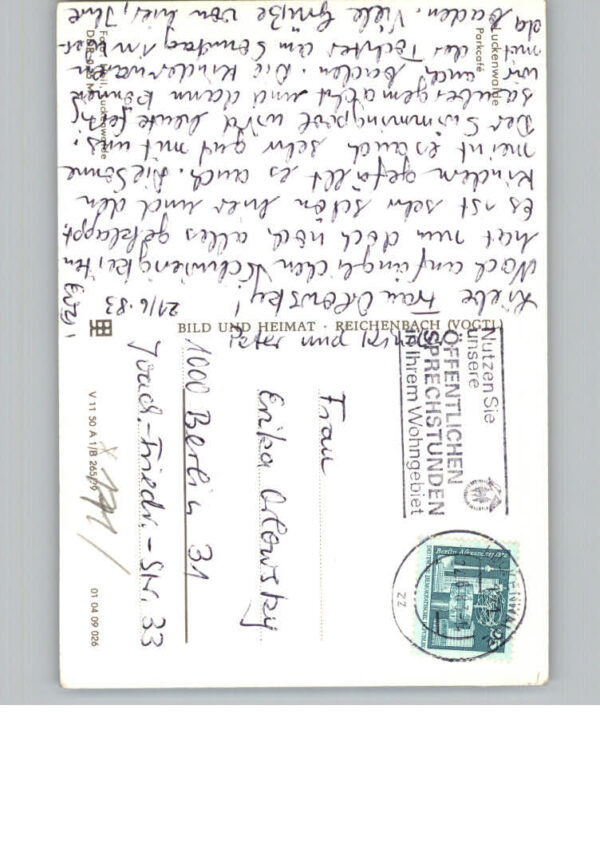 Luckenwalde
Parkcafé
21/6.83
Liebe Frau Orlowsky!
Nach anfänglichen Schwierigkeiten
hat nun doch noch alles geklappt.
Es ist sehr schön hier und den
Kindern gefällt es auch. Die Sonne
meint es auch sehr gut mit uns.
Der Swimmingpool wird heute
saubergemacht und dann können
wir auch baden. Die Kinder waren
mit der Tochter am Sonntag im
da baden. Viele Grüße von hier, Ihre
BILD UND HEIMAT · REICHENBACH (VOGTL)
Nutzen Sie
unsere
ÖFFENTLICHEN
SPRECHSTUNDEN
in Ihrem Wohngebiet
Berlin, Alexanderplatz
DEUTSCHE DEMOKRATISCHE REPUBLIK
25
Frau
Erika Orlowsky
1000 Berlin 31
Joach.-Friedr.-Str. 33
V 11 50 A 1/B 265/79
01 04 09 026